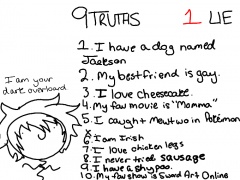 9 TRUTHS 1 LIE
1. I have a dog named
Jackson
2. My best friend is gay.
3. I love cheesecake.
4. My fav movie is "Momma"
5. I caught Mewtwo in Pokémon
X
6. I am Irish
7. I love chicken legs
8. I never tried sausage
9. I have a shypoo.
10. My fav show is Sword Art Online
I am your
dark overboard